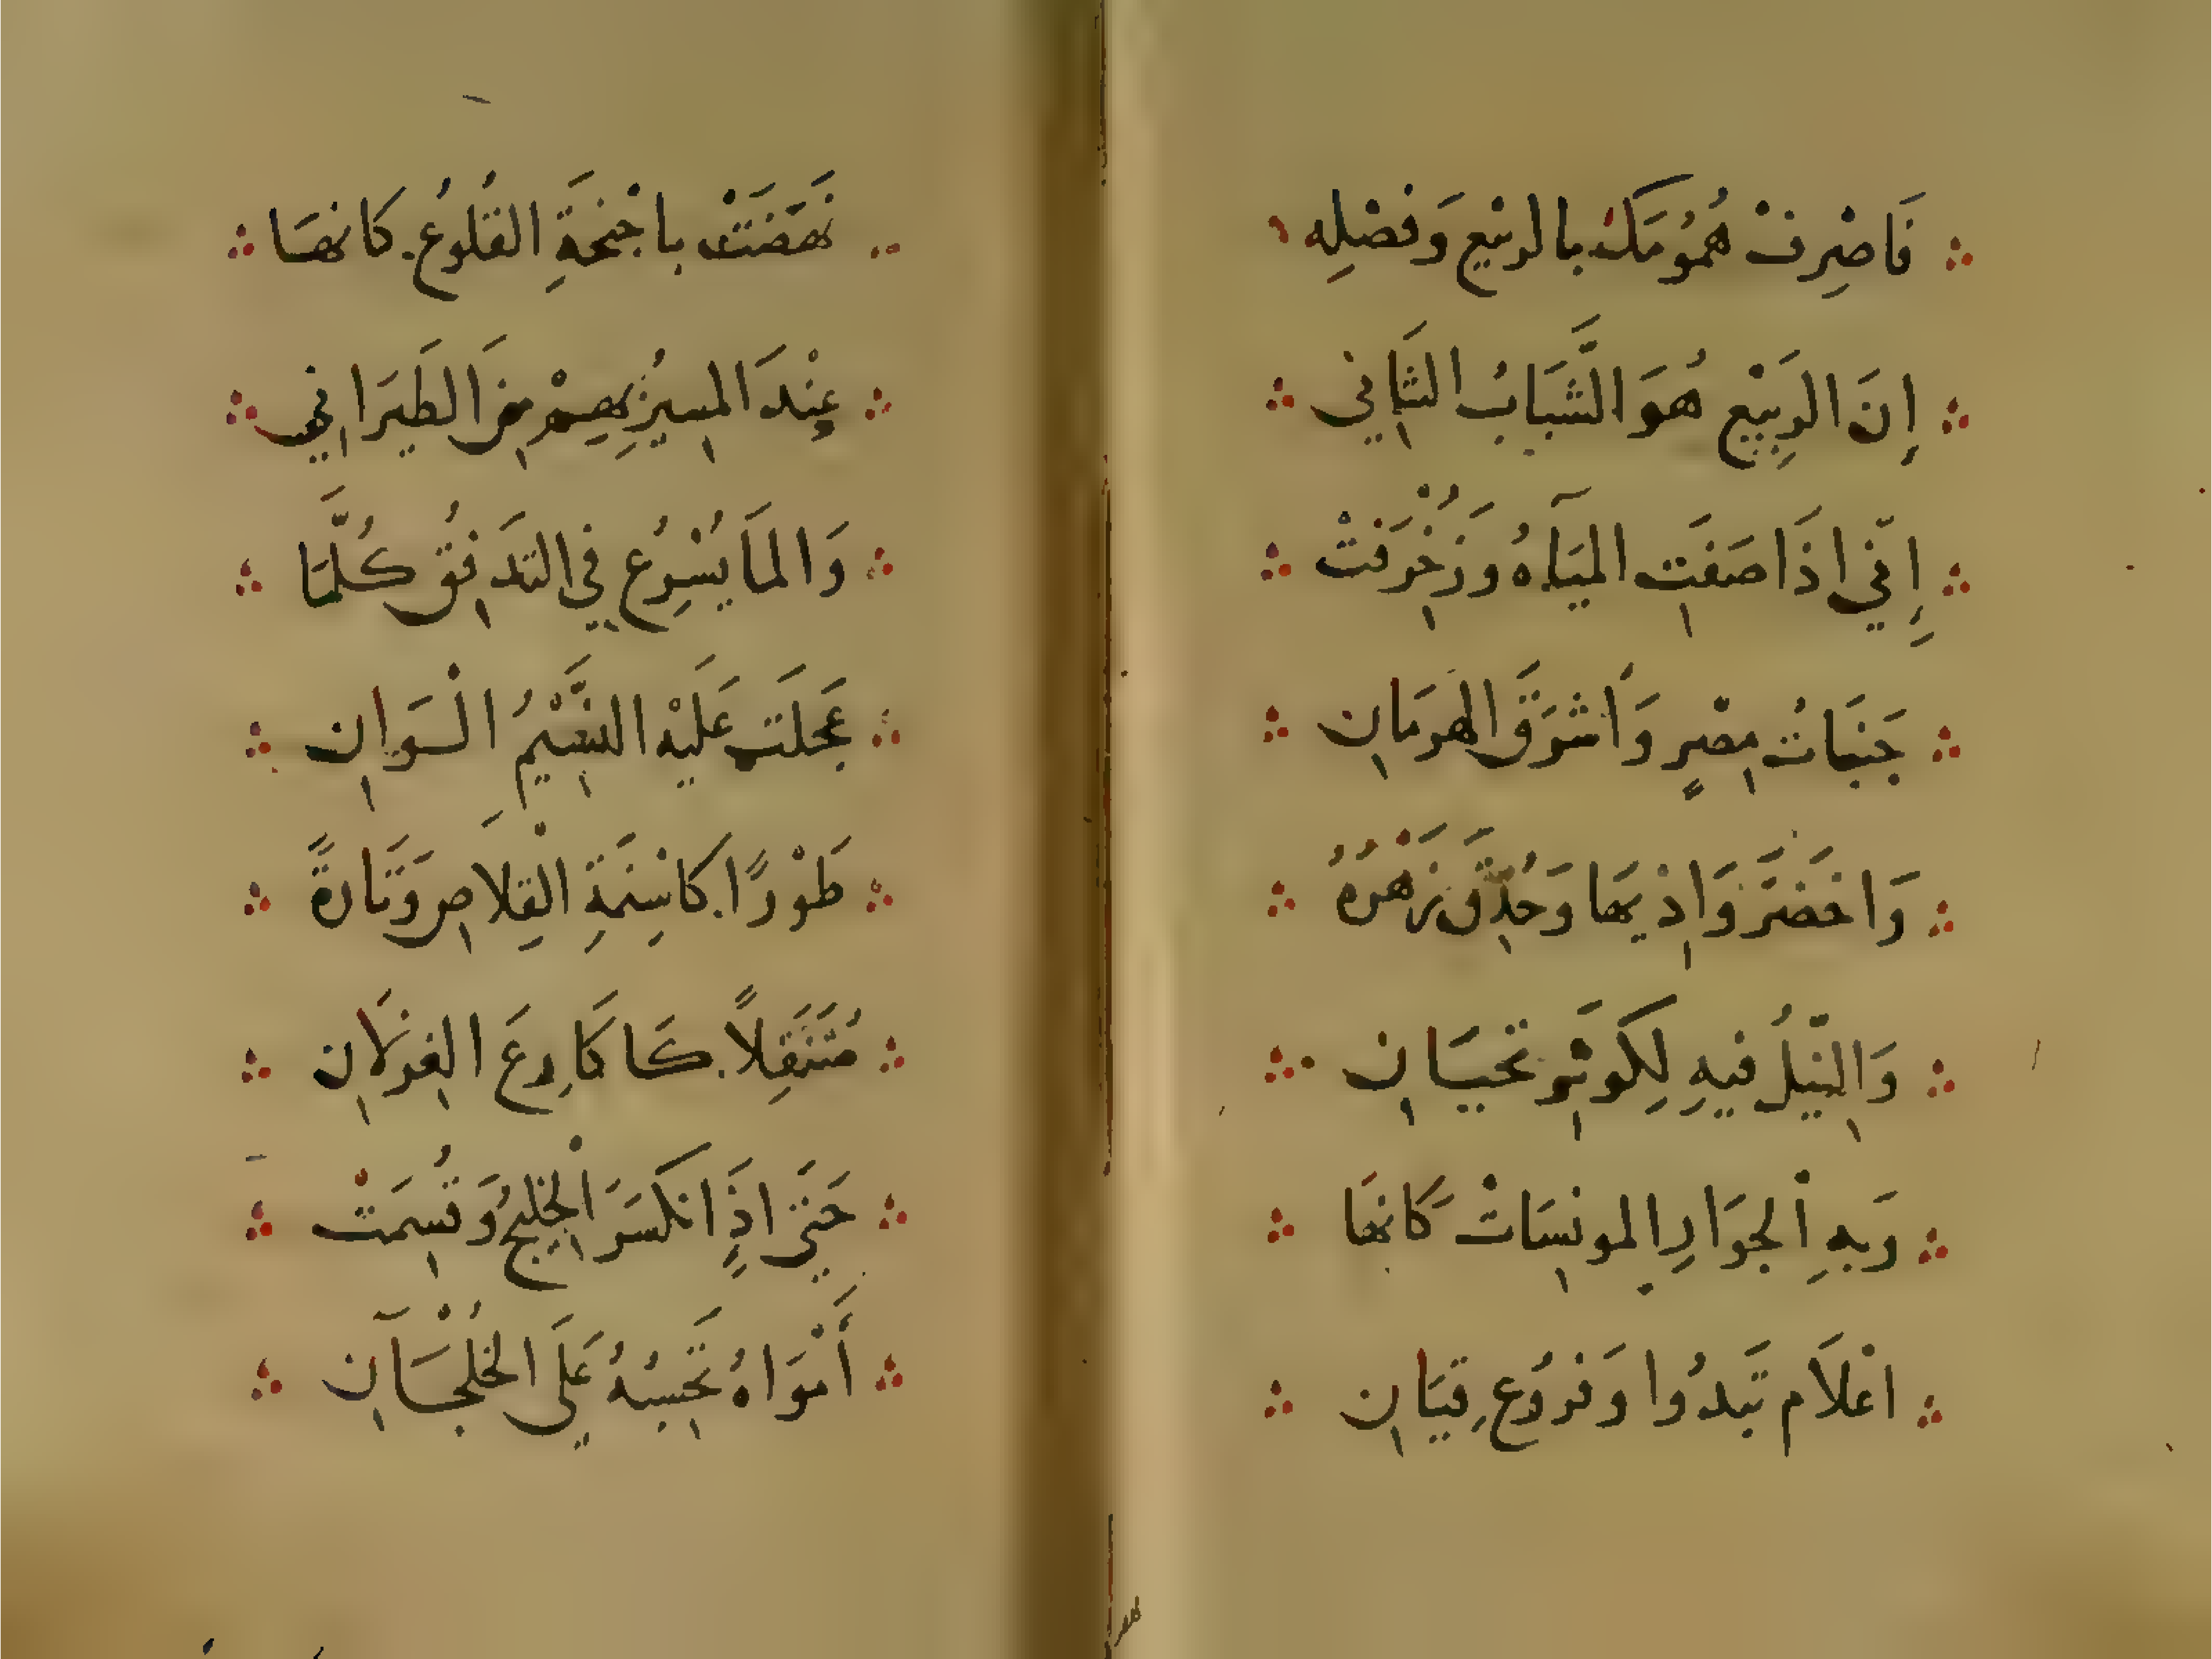 فَاصْرِفْ هُمُومَكَ بالربيع وَفضْلِهِ
إِنَ الرَبِيْع هُوَ الشَّبَابُ الثَّانِي
اِنِّي اذَا صَفَتِ الميَاهُ وَزُخْرِفَتْ
جَنَبَاتُ مِصْرٍ وَأَشرَقَ الهرَمَانِ
وَاخضَرَ وَادِيهَا وَحُدِّقَ زَهْرُهُ
وَالنِّيلُ فيهِ لِكَوثَرٍ تحيَانِ
وَبهِ اْلجوَارِ المونسَاتْ كَانهَا
اعْلَام تَبدُوا وَفروُع قِيَانِ
نَهَضَتْ باجْنِحَةِ القلُوُع كانهَا
عِنْدَ المسِيْرُ بِهِمْ مِنَ الطَيَرَانِ
وَالمَا يُسْرِعُ فِي التدَفُق كُلَّمَا
عَجلَت عَلَيْهِ النَّسِيْمُ اْلسَوَانِ
طَوْرًا كاسْنِمَةِ الْقِلَاصِ وَتَارَةً
مُتَنَقِلًا كَاكَارِعَ الغزلَانِ
حَتَي اذِ انكسَرَ اْلخلِيجُ وَقُسِمَتْ
أَمْوَاهُ تَحسبُهُ عَلَي اْلخُلْجَآنِ